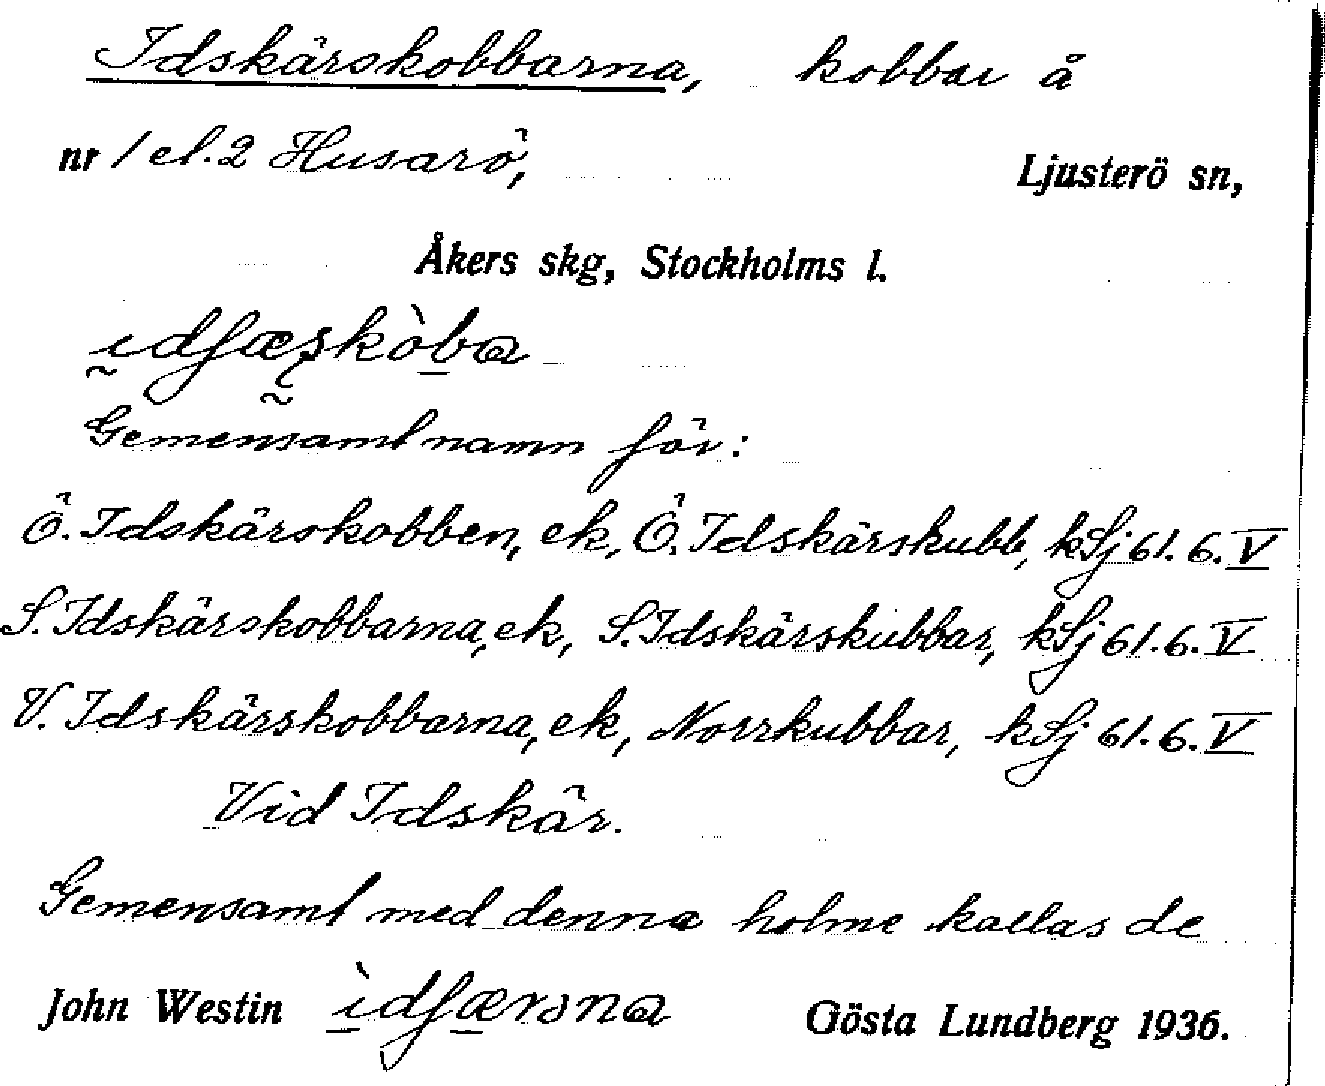 Idskärskobbarna, kobbar å
nr 1 el. 2 Husarö, Ljusterö sn,
Åkers skg, Stockholms l.
Gemensamt namn för:
Ö. Idskärskobben, ek, Ö. Idskärskubb, kSj 61. 6. V
S. Idskärskobbarna, ek, S. Idskärskubbar, kSj 61. 6. V
V. Idskärskobbarna, ek, Norrkubbar, kSj 61. 6. V
Vid Idskär.
Gemensamt med denna holme kallas de
John Westin Gösta Lundberg 1936.